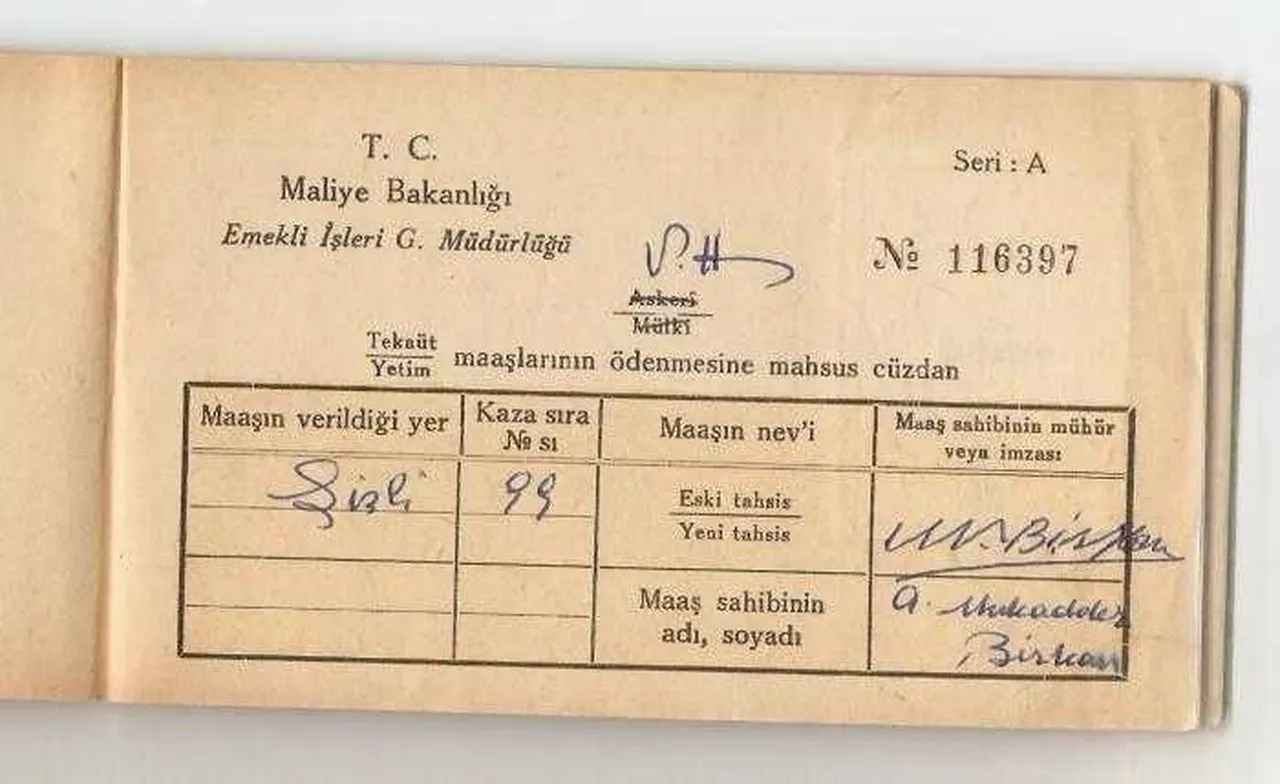 T. C.
Maliye Bakanlığı
Emekli İşleri G. Müdürlüğü
Seri : A
№ 116397
V.H
Askerî
Mülkî
Tekaüt
Yetim
maaşlarının ödenmesine mahsus cüzdan
Maaşın verildiği yer
Kaza sıra
№ sı
Maaşın nev'i
Maaş sahibinin mühür
veya imzası
Şişli
99
Eski tahsis
Yeni tahsis
M. Birkan
Maaş sahibinin
adı, soyadı
A. Mukaddes
Birkan